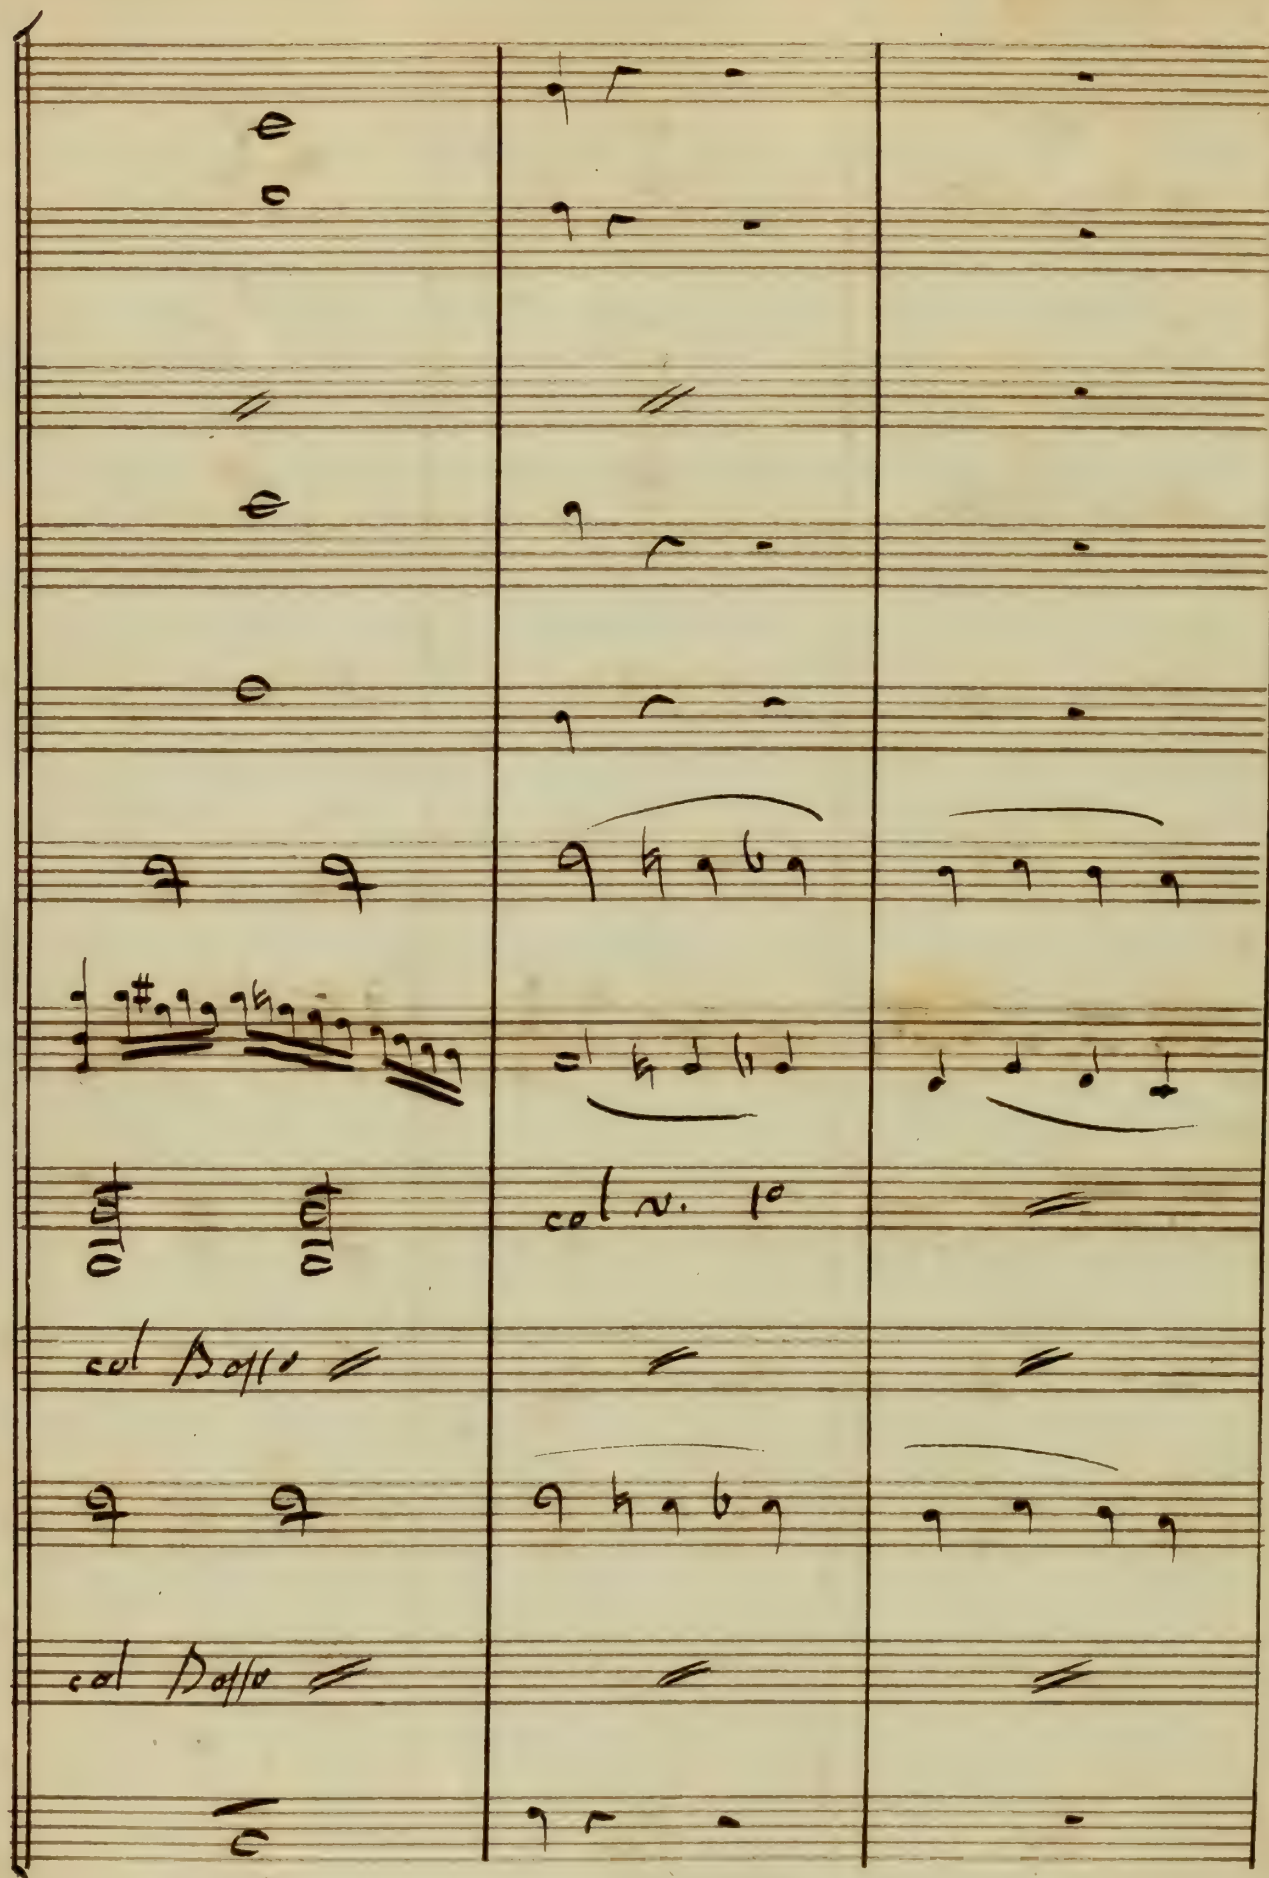 col v. 1º
col Basso
col Basso